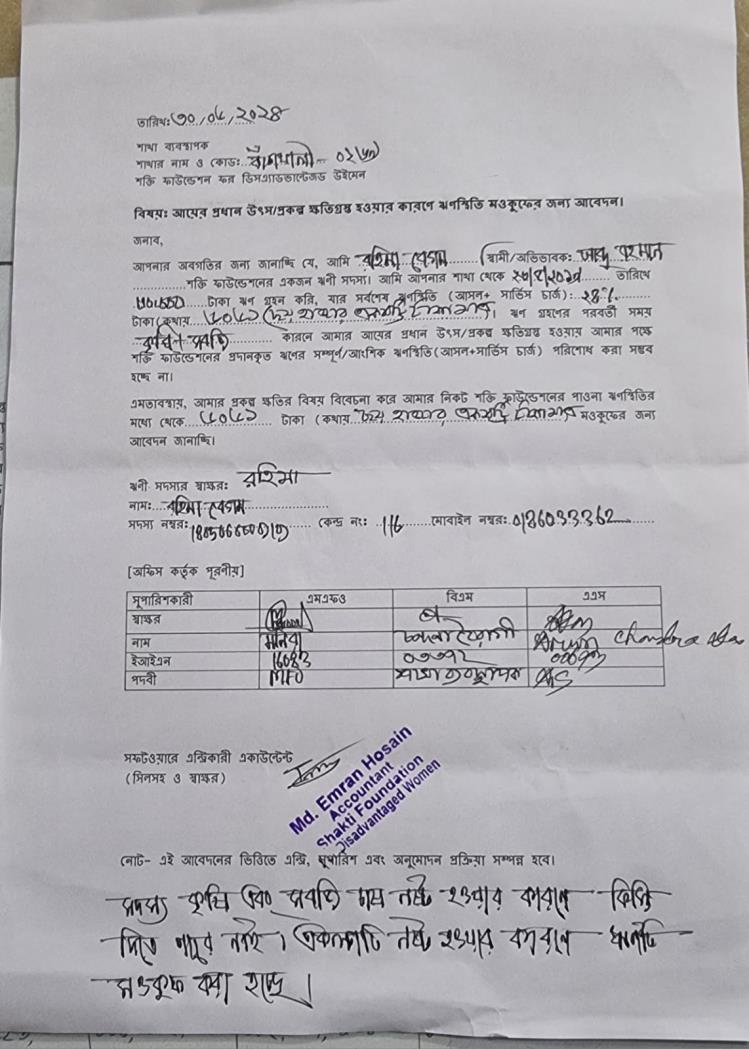 তারিখঃ ৩০/০৬/২০২৪
শাখা ব্যবস্থাপক
শাখার নাম ও কোডঃ বাঁশখালী- ০২
শক্তি ফাউন্ডেশন ফর ডিসএ্যাডভান্টেজড উইমেন
বিষয়ঃ আয়ের প্রধান উৎস/প্রকল্প ক্ষতিগ্রস্ত হওয়ার কারণে ঋণস্থিতি মওকুফের জন্য আবেদন।
জনাব,
আপনার অবগতির জন্য জানাচ্ছি যে, আমি রহিমা বেগম স্বামী/অভিভাবকঃ রহমান
শক্তি ফাউন্ডেশনের একজন ঋণী সদস্য। আমি আপনার শাখা থেকে তারিখে
টাকা ঋণ গ্রহন করি, যার সর্বশেষ ঋণস্থিতি (আসল+ সার্ভিস চার্জ): ২৪%
টাকা (কথায় ছয় হাজার টাকা মাত্র)। ঋণ গ্রহণের পরবর্তী সময়
কৃষি+সবজি কারনে আমার আয়ের প্রধান উৎস/প্রকল্প ক্ষতিগ্রস্ত হওয়ায় আমার পক্ষে
শক্তি ফাউন্ডেশনের প্রদানকৃত ঋণের সম্পূর্ণ/আংশিক ঋণস্থিতি (আসল+সার্ভিস চার্জ) পরিশোধ করা সম্ভব
হচ্ছে না।
এমতাবস্থায়, আমার প্রকল্প ক্ষতির বিষয় বিবেচনা করে আমার নিকট শক্তি ফাউন্ডেশনের পাওনা ঋণস্থিতির
মধ্যে থেকে টাকা (কথায় ছয় হাজার টাকা মাত্র মওকুফের জন্য
আবেদন জানাচ্ছি।
ঋণী সদস্যর স্বাক্ষরঃ রহিমা
নামঃ রহিমা বেগম
সদস্য নম্বরঃ কেন্দ্র নংঃ 116 মোবাইল নম্বরঃ 0186033362
[অফিস কর্তৃক পূরনীয়]
সুপারিশকারী এমএফও বিএম এএস
স্বাক্ষর
নাম Chandra
ইআইএন 16083
পদবী MFO শাখা ব্যবস্থাপক AS
সফটওয়ারে এন্ট্রিকারী একাউন্টেন্ট
(সিলসহ ও স্বাক্ষর)
Md. Emran Hosain
Accountant
Shakti Foundation
Disadvantaged Women
নোট- এই আবেদনের ভিত্তিতে এন্ট্রি, সুপারিশ এবং অনুমোদন প্রক্রিয়া সম্পন্ন হবে।
সদস্য কৃষি এবং সবজি চাষ নষ্ট হওয়ার কারণে কিস্তি
দিতে পারে নাই। প্রকল্পটি নষ্ট হওয়ার কারণে ঋণটি
মওকুফ করা হচ্ছে।